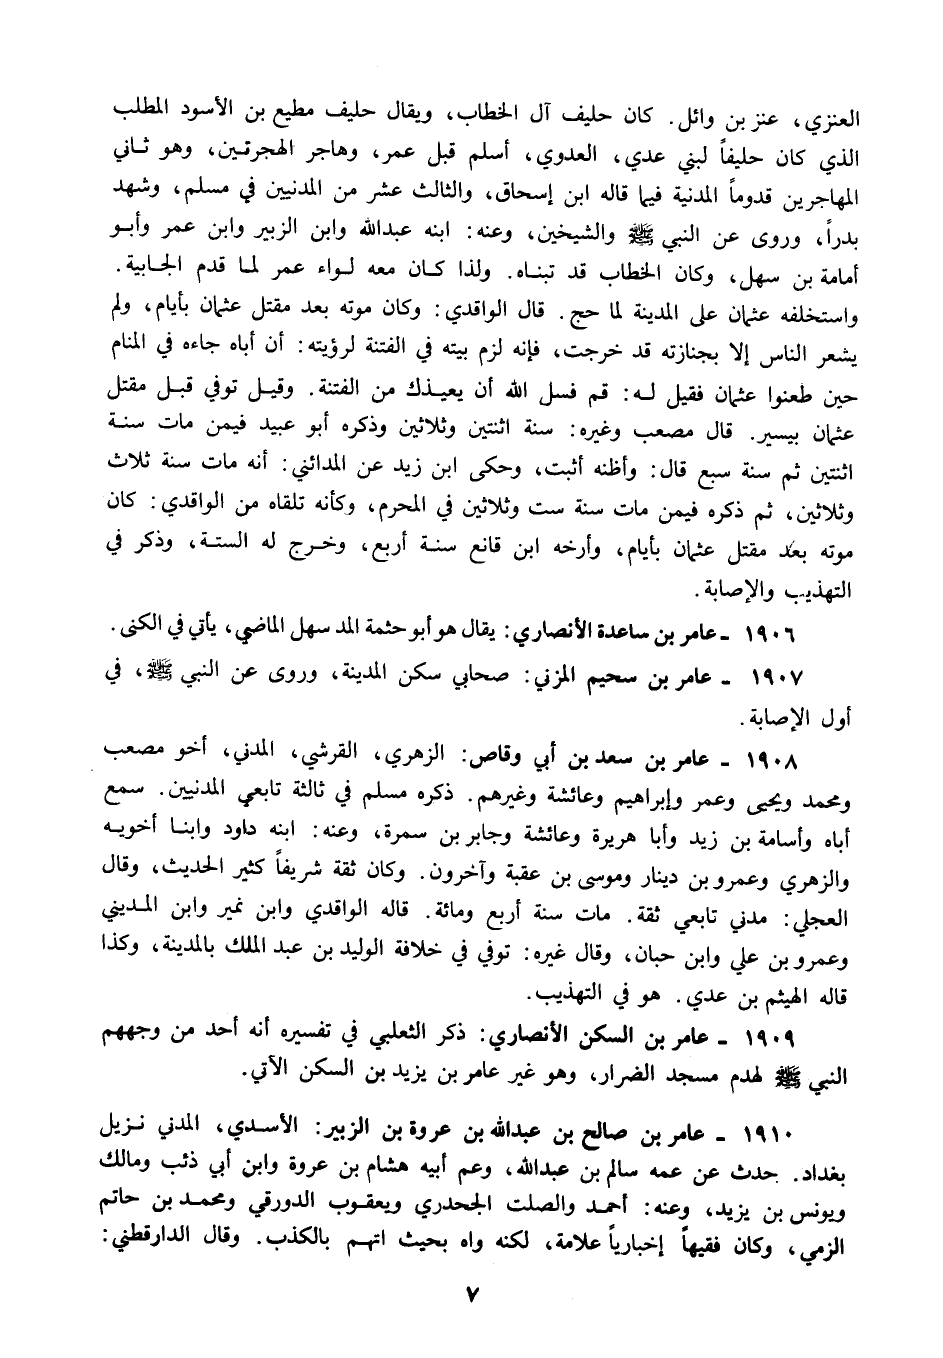 العنزي، عنز بن وائل. كان حليف آل الخطاب، ويقال حليف مطيع بن الأسود المطلب
الذي كان حليفاً لبني عدي، العدوي، أسلم قبل عمر، وهاجر الهجرتين، وهو ثاني
المهاجرين قدوماً المدنية فيما قاله ابن إسحاق، والثالث عشر من المدنيين في مسلم، وشهد
بدراً، وروى عن النبي ﷺ والشيخين، وعنه: ابنه عبدالله وابن الزبير وابن عمر وأبو
أمامة بن سهل، وكان الخطاب قد تبناه. ولذا كان معه لواء عمر لما قدم الجابية.
واستخلفه عثمان على المدينة لما حج. قال الواقدي: وكان موته بعد مقتل عثمان بأيام، ولم
يشعر الناس إلا بجنازته قد خرجت، فإنه لزم بيته في الفتنة لرؤيته: أن أباه جاءه في المنام
حين طعنوا عثمان فقيل له: قم فسل الله أن يعيذك من الفتنة. وقيل توفي قبل مقتل
عثمان بيسير. قال مصعب وغيره: سنة اثنتين وثلاثين وذكره أبو عبيد فيمن مات سنة
اثنتين ثم سنة سبع قال: وأظنه أثبت، وحكى ابن زيد عن المدائني: أنه مات سنة ثلاث
وثلاثين، ثم ذكره فيمن مات سنة ست وثلاثين في المحرم، وكأنه تلقاه من الواقدي: كان
موته بعد مقتل عثمان بأيام، وأرخه ابن قانع سنة أربع، وخرج له الستة، وذكر في
التهذيب والإصابة.
١٩٠٦ ـ عامر بن ساعدة الأنصاري: يقال هو أبو حثمة المد سهل الماضي، يأتي في الكنى.
١٩٠٧ ـ عامر بن سحيم المزني: صحابي سكن المدينة، وروى عن النبي ﷺ، في
أول الإصابة.
١٩٠٨ ـ عامر بن سعد بن أبي وقاص: الزهري، القرشي، المدني، أخو مصعب
ومحمد ويحيى وعمر وإبراهيم وعائشة وغيرهم. ذكره مسلم في ثالثة تابعي المدنيين. سمع
أباه وأسامة بن زيد وأبا هريرة وعائشة وجابر بن سمرة، وعنه: ابنه داود وابنا أخويه
والزهري وعمرو بن دينار وموسى بن عقبة وآخرون. وكان ثقة شريفاً كثير الحديث، وقال
العجلي: مدني تابعي ثقة. مات سنة أربع ومائة. قاله الواقدي وابن نمير وابن المديني
وعمرو بن علي وابن حبان، وقال غيره: توفي في خلافة الوليد بن عبد الملك بالمدينة، وكذا
قاله الهيثم بن عدي. هو في التهذيب.
١٩٠٩ ـ عامر بن السكن الأنصاري: ذكر الثعلبي في تفسيره أنه أحد من وجههم
النبي ﷺ لهدم مسجد الضرار، وهو غير عامر بن يزيد بن السكن الآتي.
١٩١٠ ـ عامر بن صالح بن عبدالله بن عروة بن الزبير: الأسدي، المدني نزيل
بغداد. حدث عن عمه سالم بن عبدالله، وعم أبيه هشام بن عروة وابن أبي ذئب ومالك
ويونس بن يزيد، وعنه: أحمد والصلت الجحدري ويعقوب الدورقي ومحمد بن حاتم
الزمي، وكان فقيهاً إخبارياً علامة، لكنه واه بحيث اتهم بالكذب. وقال الدارقطني:
٧